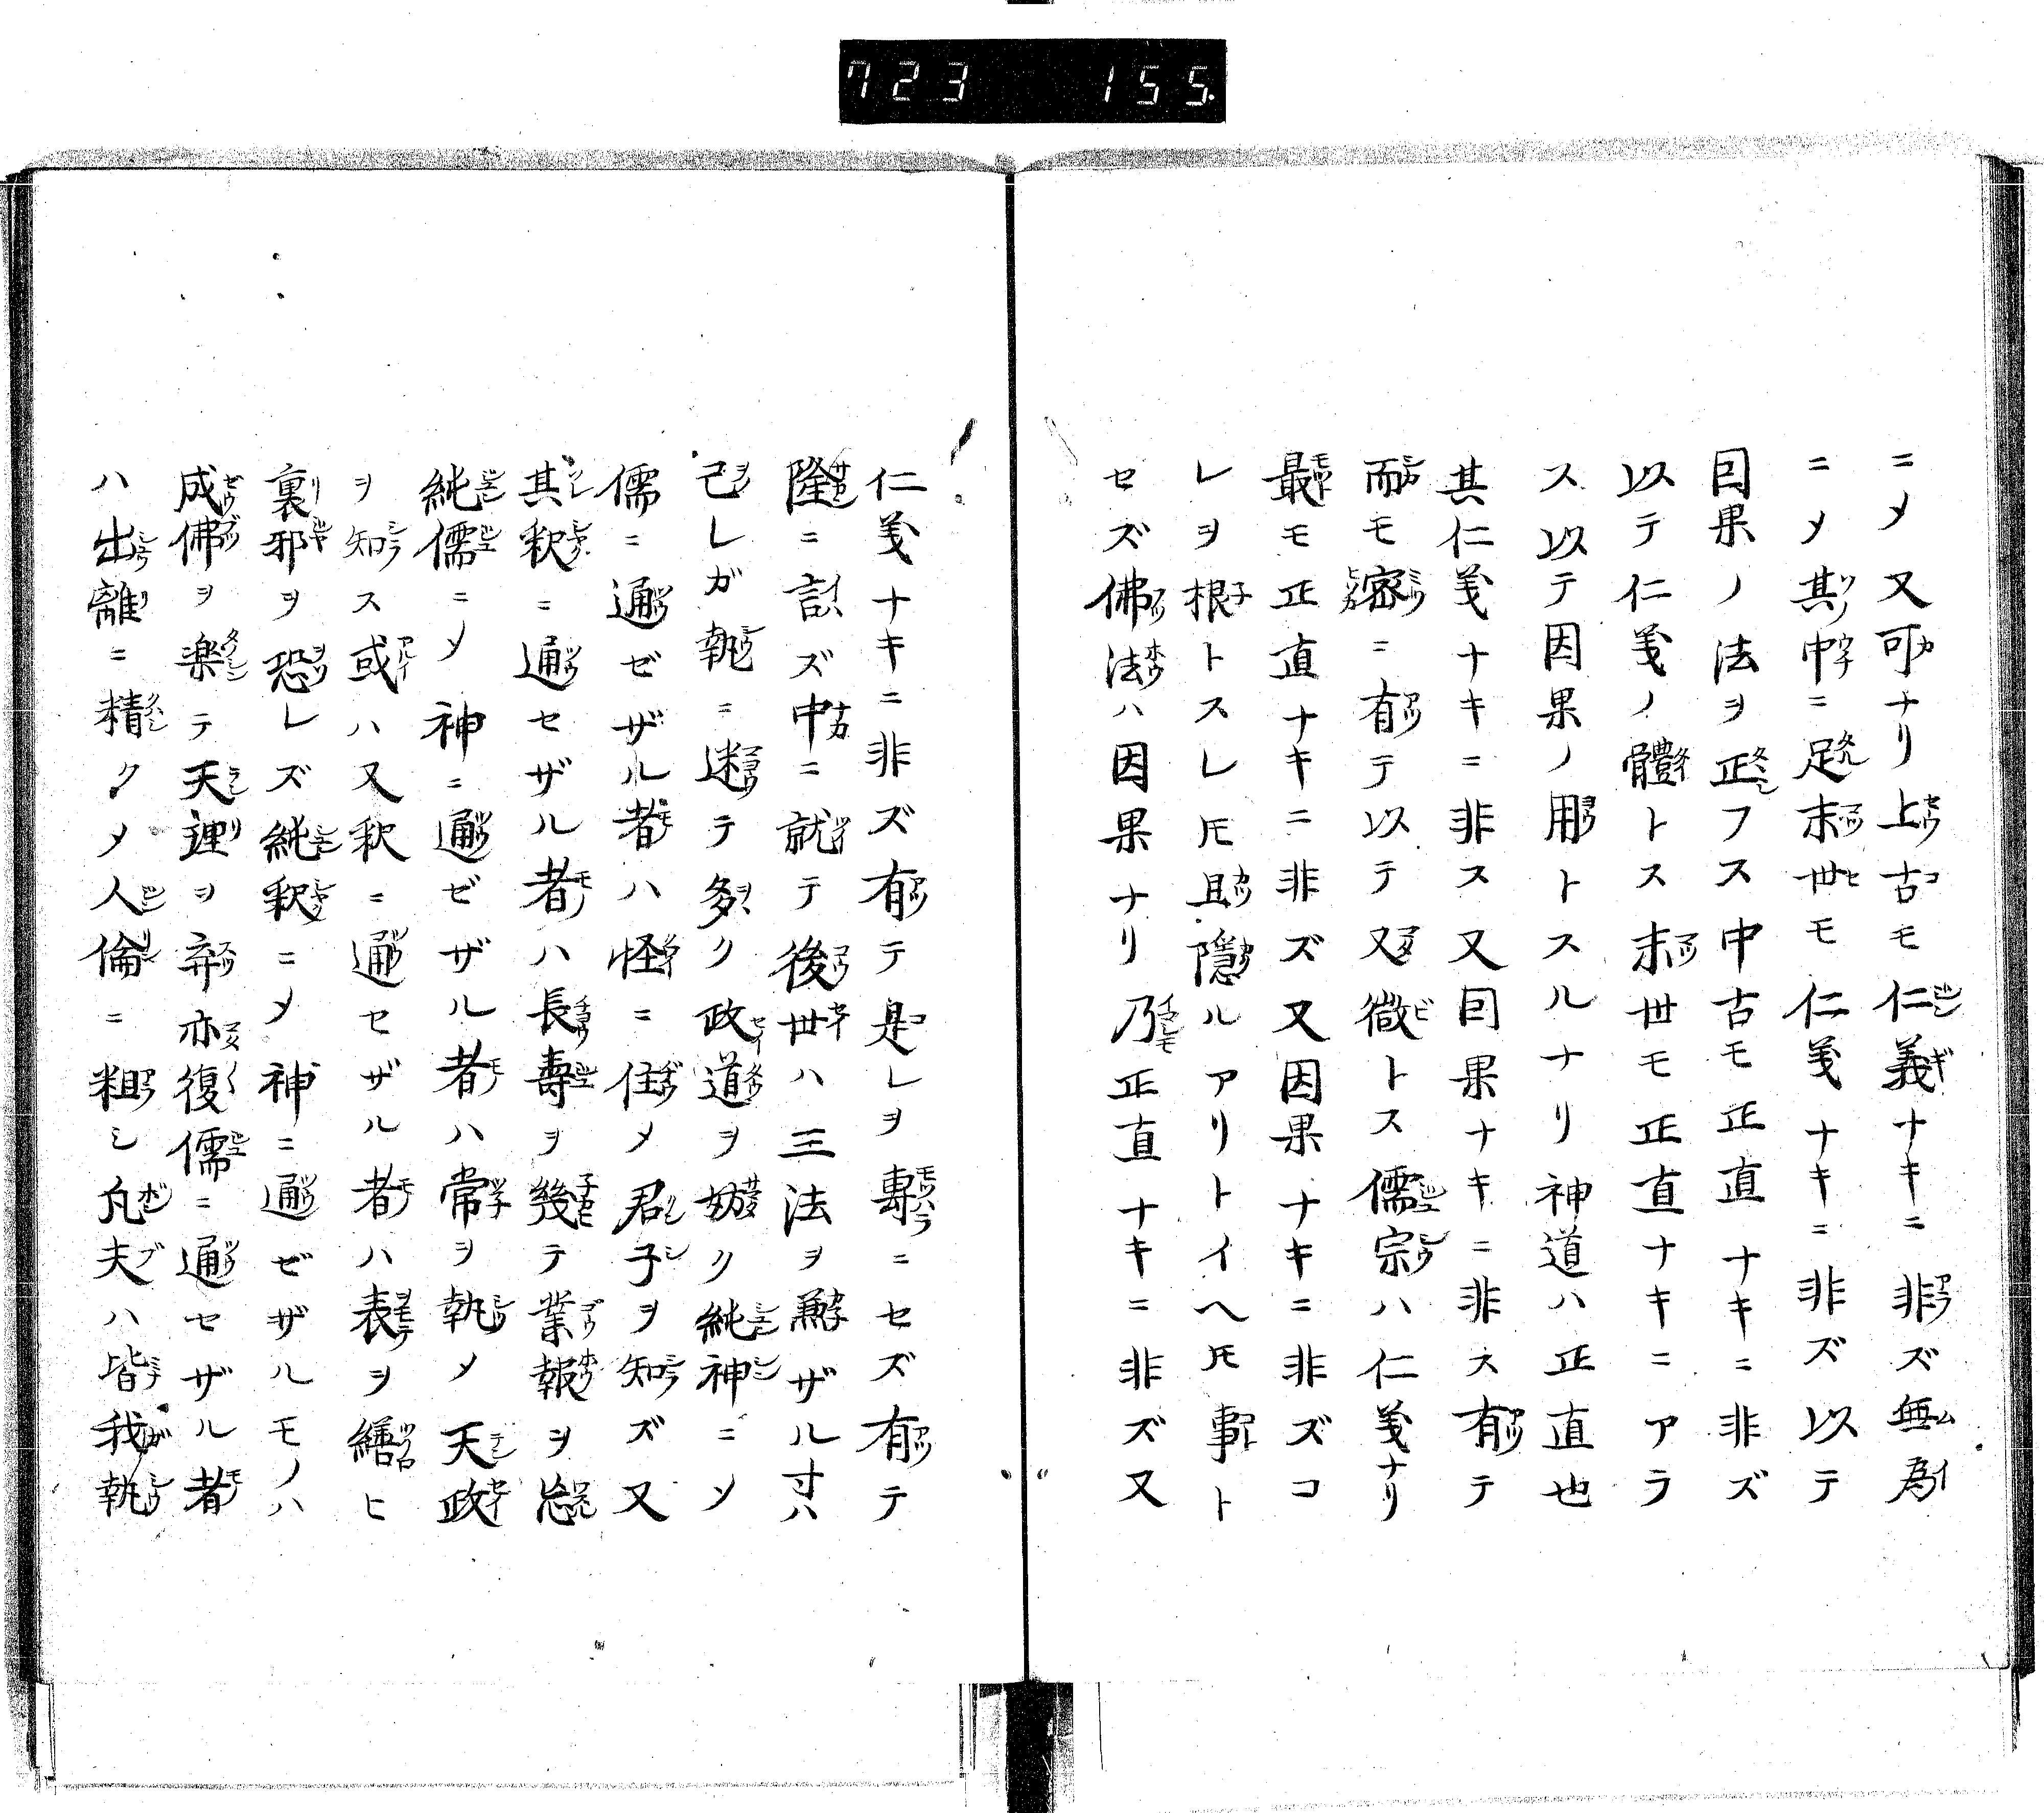 723 155.
ニメ又可ナリ上古モ仁義ナキニ非ズ無為
ニメ其中ニ足末世モ仁義ナキニ非ズ以テ
因果ノ法ヲ正フス中古モ正直ナキニ非ズ
以テ仁義ノ體トス末世モ正直ナキニアラ
ス以テ因果ノ用トスルナリ神道ハ正直也
其仁義ナキニ非ス又因果ナキニ非ス有テ
而モ密ニ有テ以テ又微トス儒宗ハ仁義ナリ
最モ正直ナキニ非ズ又因果ナキニ非ズコ
レヲ根トスレ𪜈且隠ルアリトイヘ𪜈事ト
セズ佛法ハ因果ナリ乃正直ナキニ非ズ又
仁義ナキニ非ズ有テ是レヲ專ニセズ有テ
隆ニ言ズ中ニ就テ後世ハ三法ヲ兼ザル寸ハ
己レガ執ニ迷テ多ク政道ヲ妨ク純神ニメ
儒ニ通ゼザル者ハ怪ニ住メ君子ヲ知ズ又
其釈ニ通セザル者ハ長壽ヲ幾テ業報ヲ忘
純儒ニメ神ニ通ゼザル者ハ常ヲ執メ天政
ヲ知ス或ハ又釈ニ通セザル者ハ表ヲ繕ヒ
裏邪ヲ恐レズ純釈ニメ神ニ通ゼザルモノハ
成佛ヲ楽テ天理ヲ弃亦復儒ニ通セザル者
ハ出離ニ精クメ人倫ニ粗シ凡夫ハ皆我執